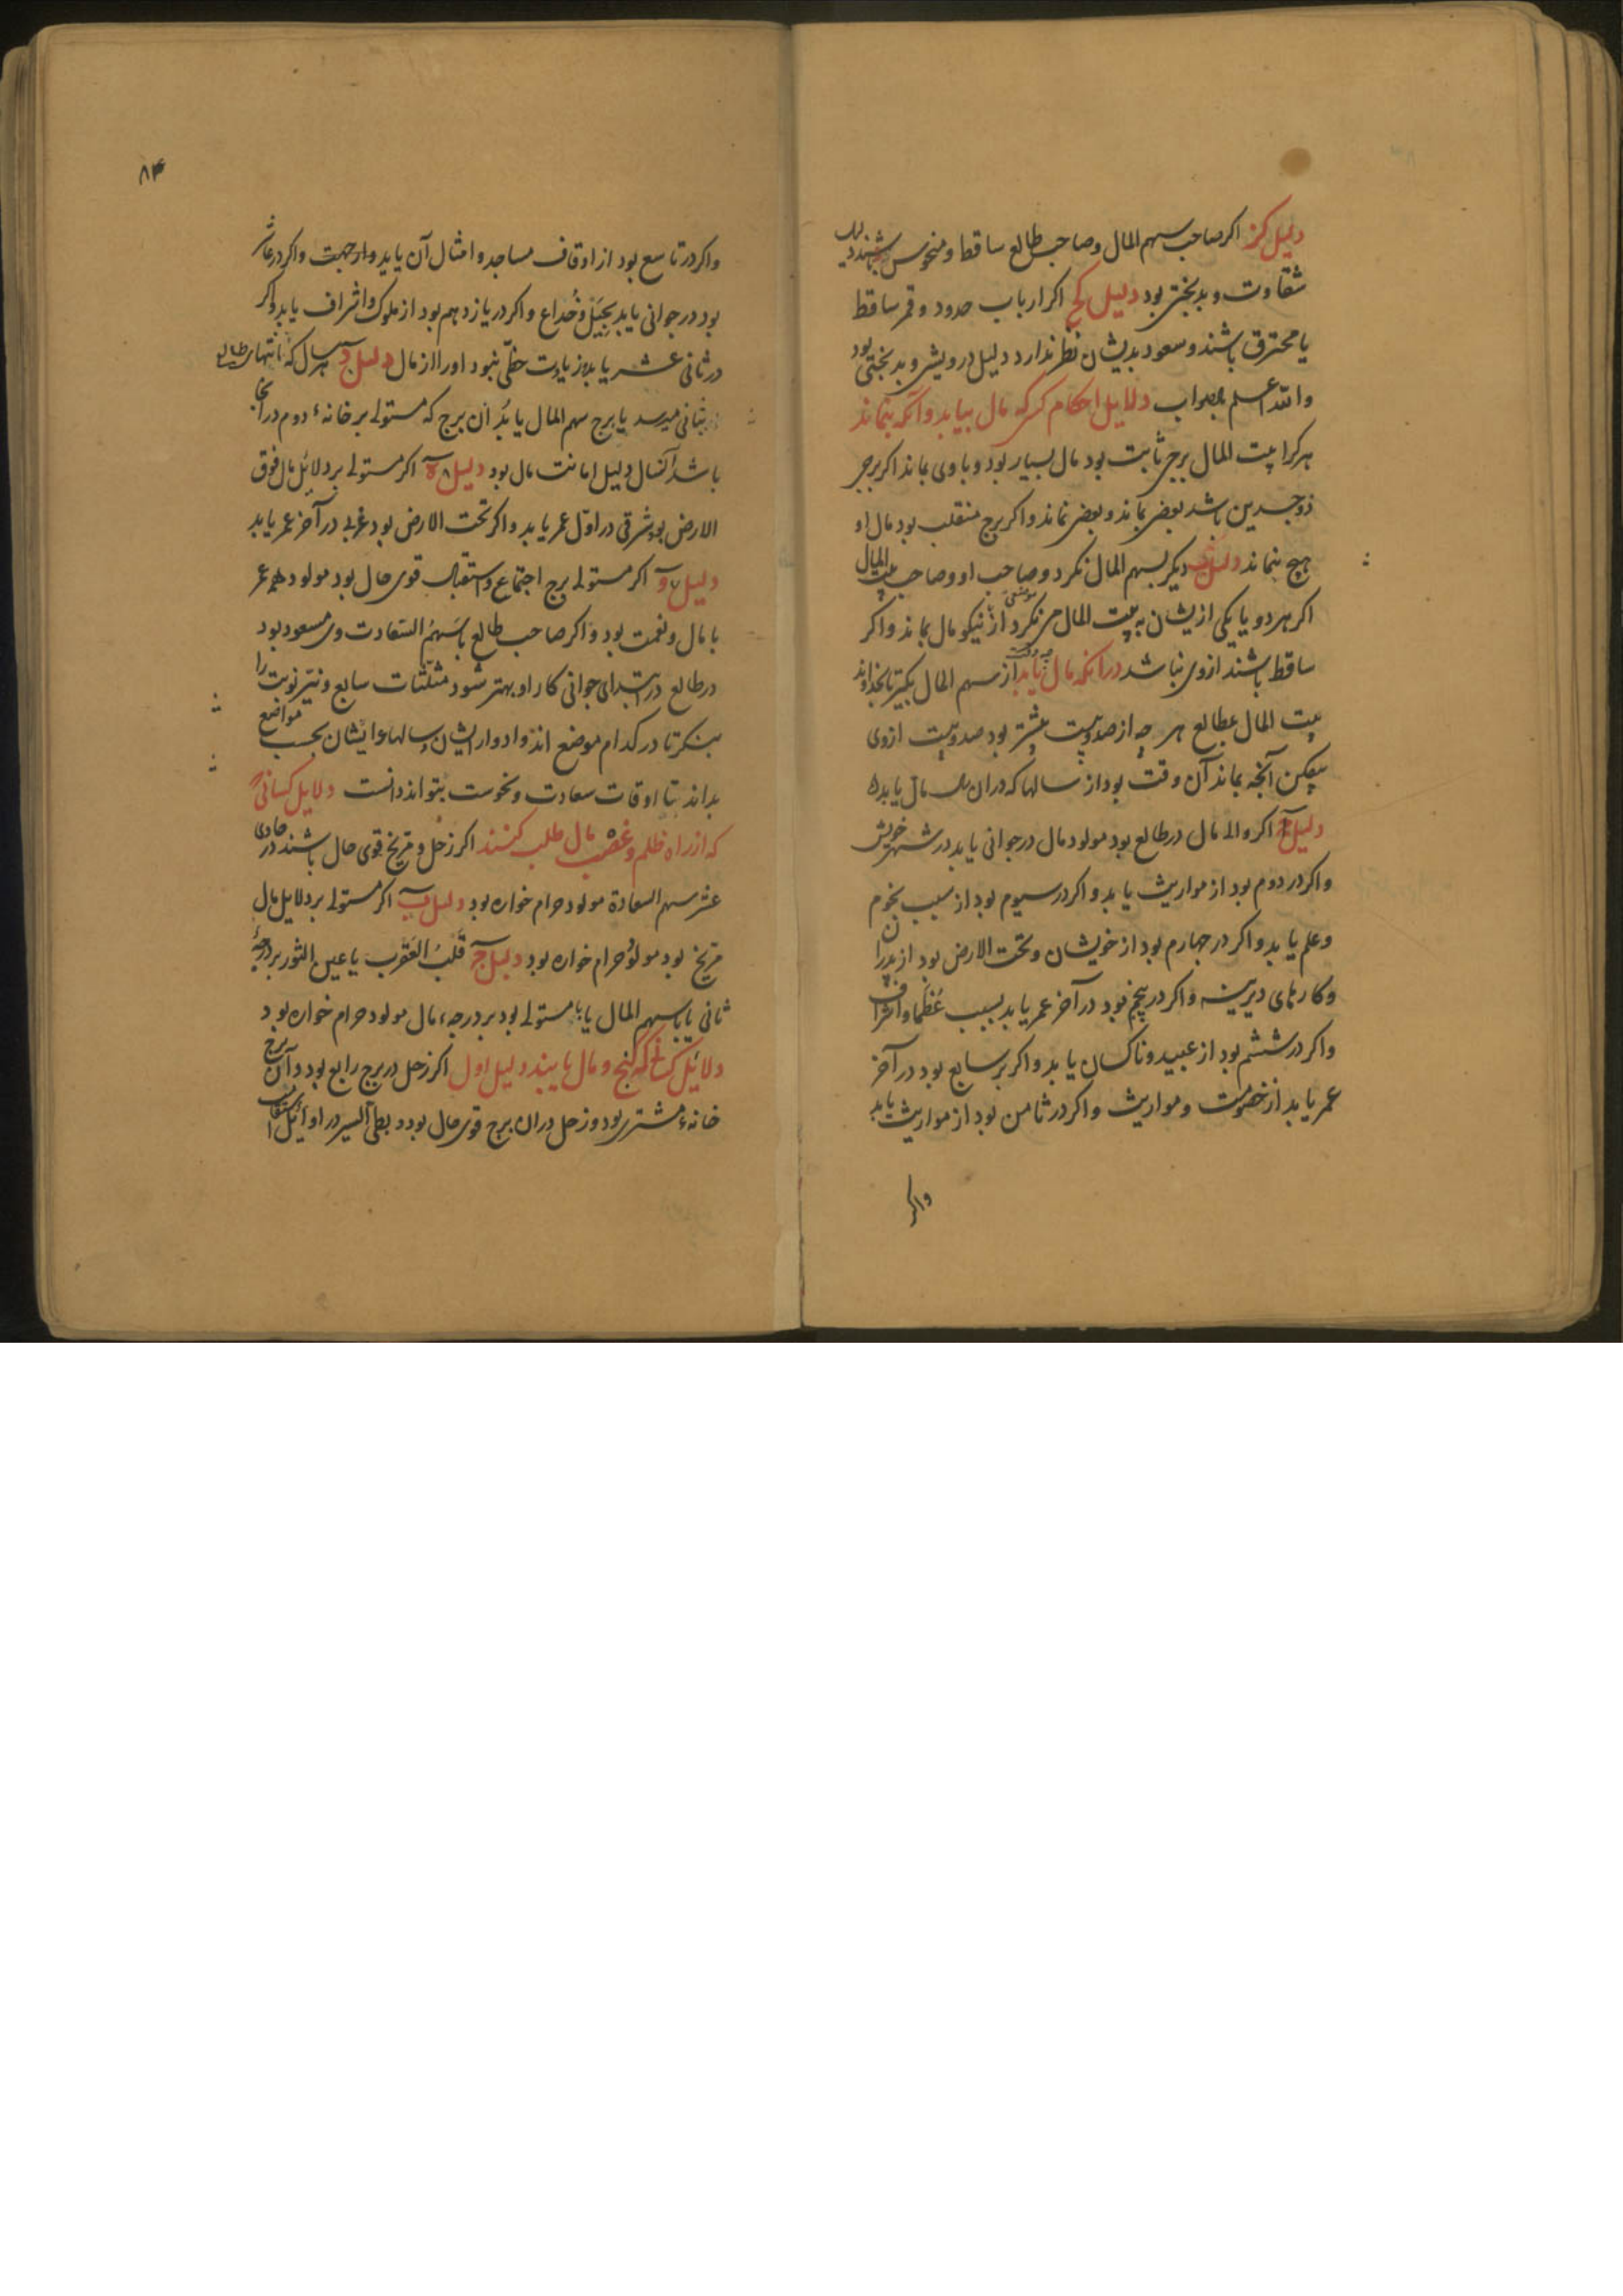 دلیل کز اکر صاحب سهم المال وصاحب طالع ساقط ومنحوس باشند دلیل
شقاوت وبدبختی بود دلیل کح اکر ارباب حدود وقمر ساقط
یا محترق باشند وسعود بدیشان نظر ندارد دلیل درویشی وبدبختی بود
والله اعلم بالصواب دلایل احکام کسی که مال بیابد وآنکه بنماند
هرکرا بیت المال برجی ثابت بود مال بسیار بود وباوی بماند اکر برجی
ذوجسدین باشد بعضی بماند وبعضی نماند واکر برج منقلب بود مال او
هیچ بنماند دلیل دیکر بسهم المال نکرد وصاحب او وصاحب بیت المال
اکر هردو یا یکی ازیشان به بیت المال می نکرد از نیکو مال بماند واکر
ساقط باشند ازوی نباشد درآنکه مال یابد از سهم المال بکیر تا بخداوند
بیت المال بطالع هر چه از صدوبیست بیشتر بود صدوبیست ازوی
بیفکن آنچه بماند آن وقت بود از سالها که دران سال مال یابد
دلیل اکر والی مال در طالع بود مولود مال در جوانی یابد در شهر خویش
واکر در دوم بود از مواریث یابد واکر در سیوم بود از سبب نجوم
وعلم یابد واکر در چهارم بود از خویشان وتحت الارض بود از پدران
وکارهای دیرینه واکر در پنجم بود در آخر عمر یابد بسبب عُظما واشراف
واکر در ششم بود از عبید وناکسان یابد واکر بر سابع بود در آخر
عمر یابد از خصومت ومواریث واکر در ثامن بود از مواریث یابد
واکر
۸۴
واکر در تاسع بود از اوقاف مساجد وامثال آن یابد واکر در عاشر
بود در جوانی یابد بحِیَل وخُداع واکر در یازدهم بود از ملوک واشراف یابد واکر
در ثانی عشر یابد زیادت حظّی نبود اورا از مال دلیل د هر سال که انتهای طالع
بثانی میرسد یا برج سهم المال یا بدُ آن برج که مستولی بر خانهٔ دوم در آنجا
باشد آنسال دلیل مال بود دلیل ه اکر مستولی بر دلائل مال فوق
الارض بود شرقی در اوّل عمر یابد واکر تحت الارض بود غربی در آخر عمر یابد
دلیل و اکر مستولی برج اجتماع واستقبال قوی حال بود مولود همه عمر
با مال ونعمت بود واکر صاحب طالع با سَهمُ السَعادت وی مسعود بود
در طالع در ابتدای جوانی کار او بهتر شود مثلّثات سابع ونیّر نوبت را
بنکر تا در کدام موضع اند وادوار ایشان وسالهاء ایشان بحسب مواضع
بداند تا اوقات سعادت ونحوست بتواند دانست دلایل کسانی
که از راه ظلم وغصب مال طلب کنند اکر زحل ومریخ قوی حال باشند در حادی
عشر سهم السعادة مولود حرام خواره بود دلیل ب اکر مستولی بر دلایل مال
مریخ بود مولود حرام خواره بود دلیل ج قَلبُ العَقرب یا عین الثور بر درجهٔ
ثانی یا با سهم المال یا با مستولی بود بر درجهٔ مال مولود حرام خواره بود
دلائل کسانی که کنج ومال یابند دلیل اول اکر زحل در برج رابع بود وآن برج
خانهٔ مشتری بود وزحل دران برج قوی حال بود وبطی السیر در اوائل استقامت